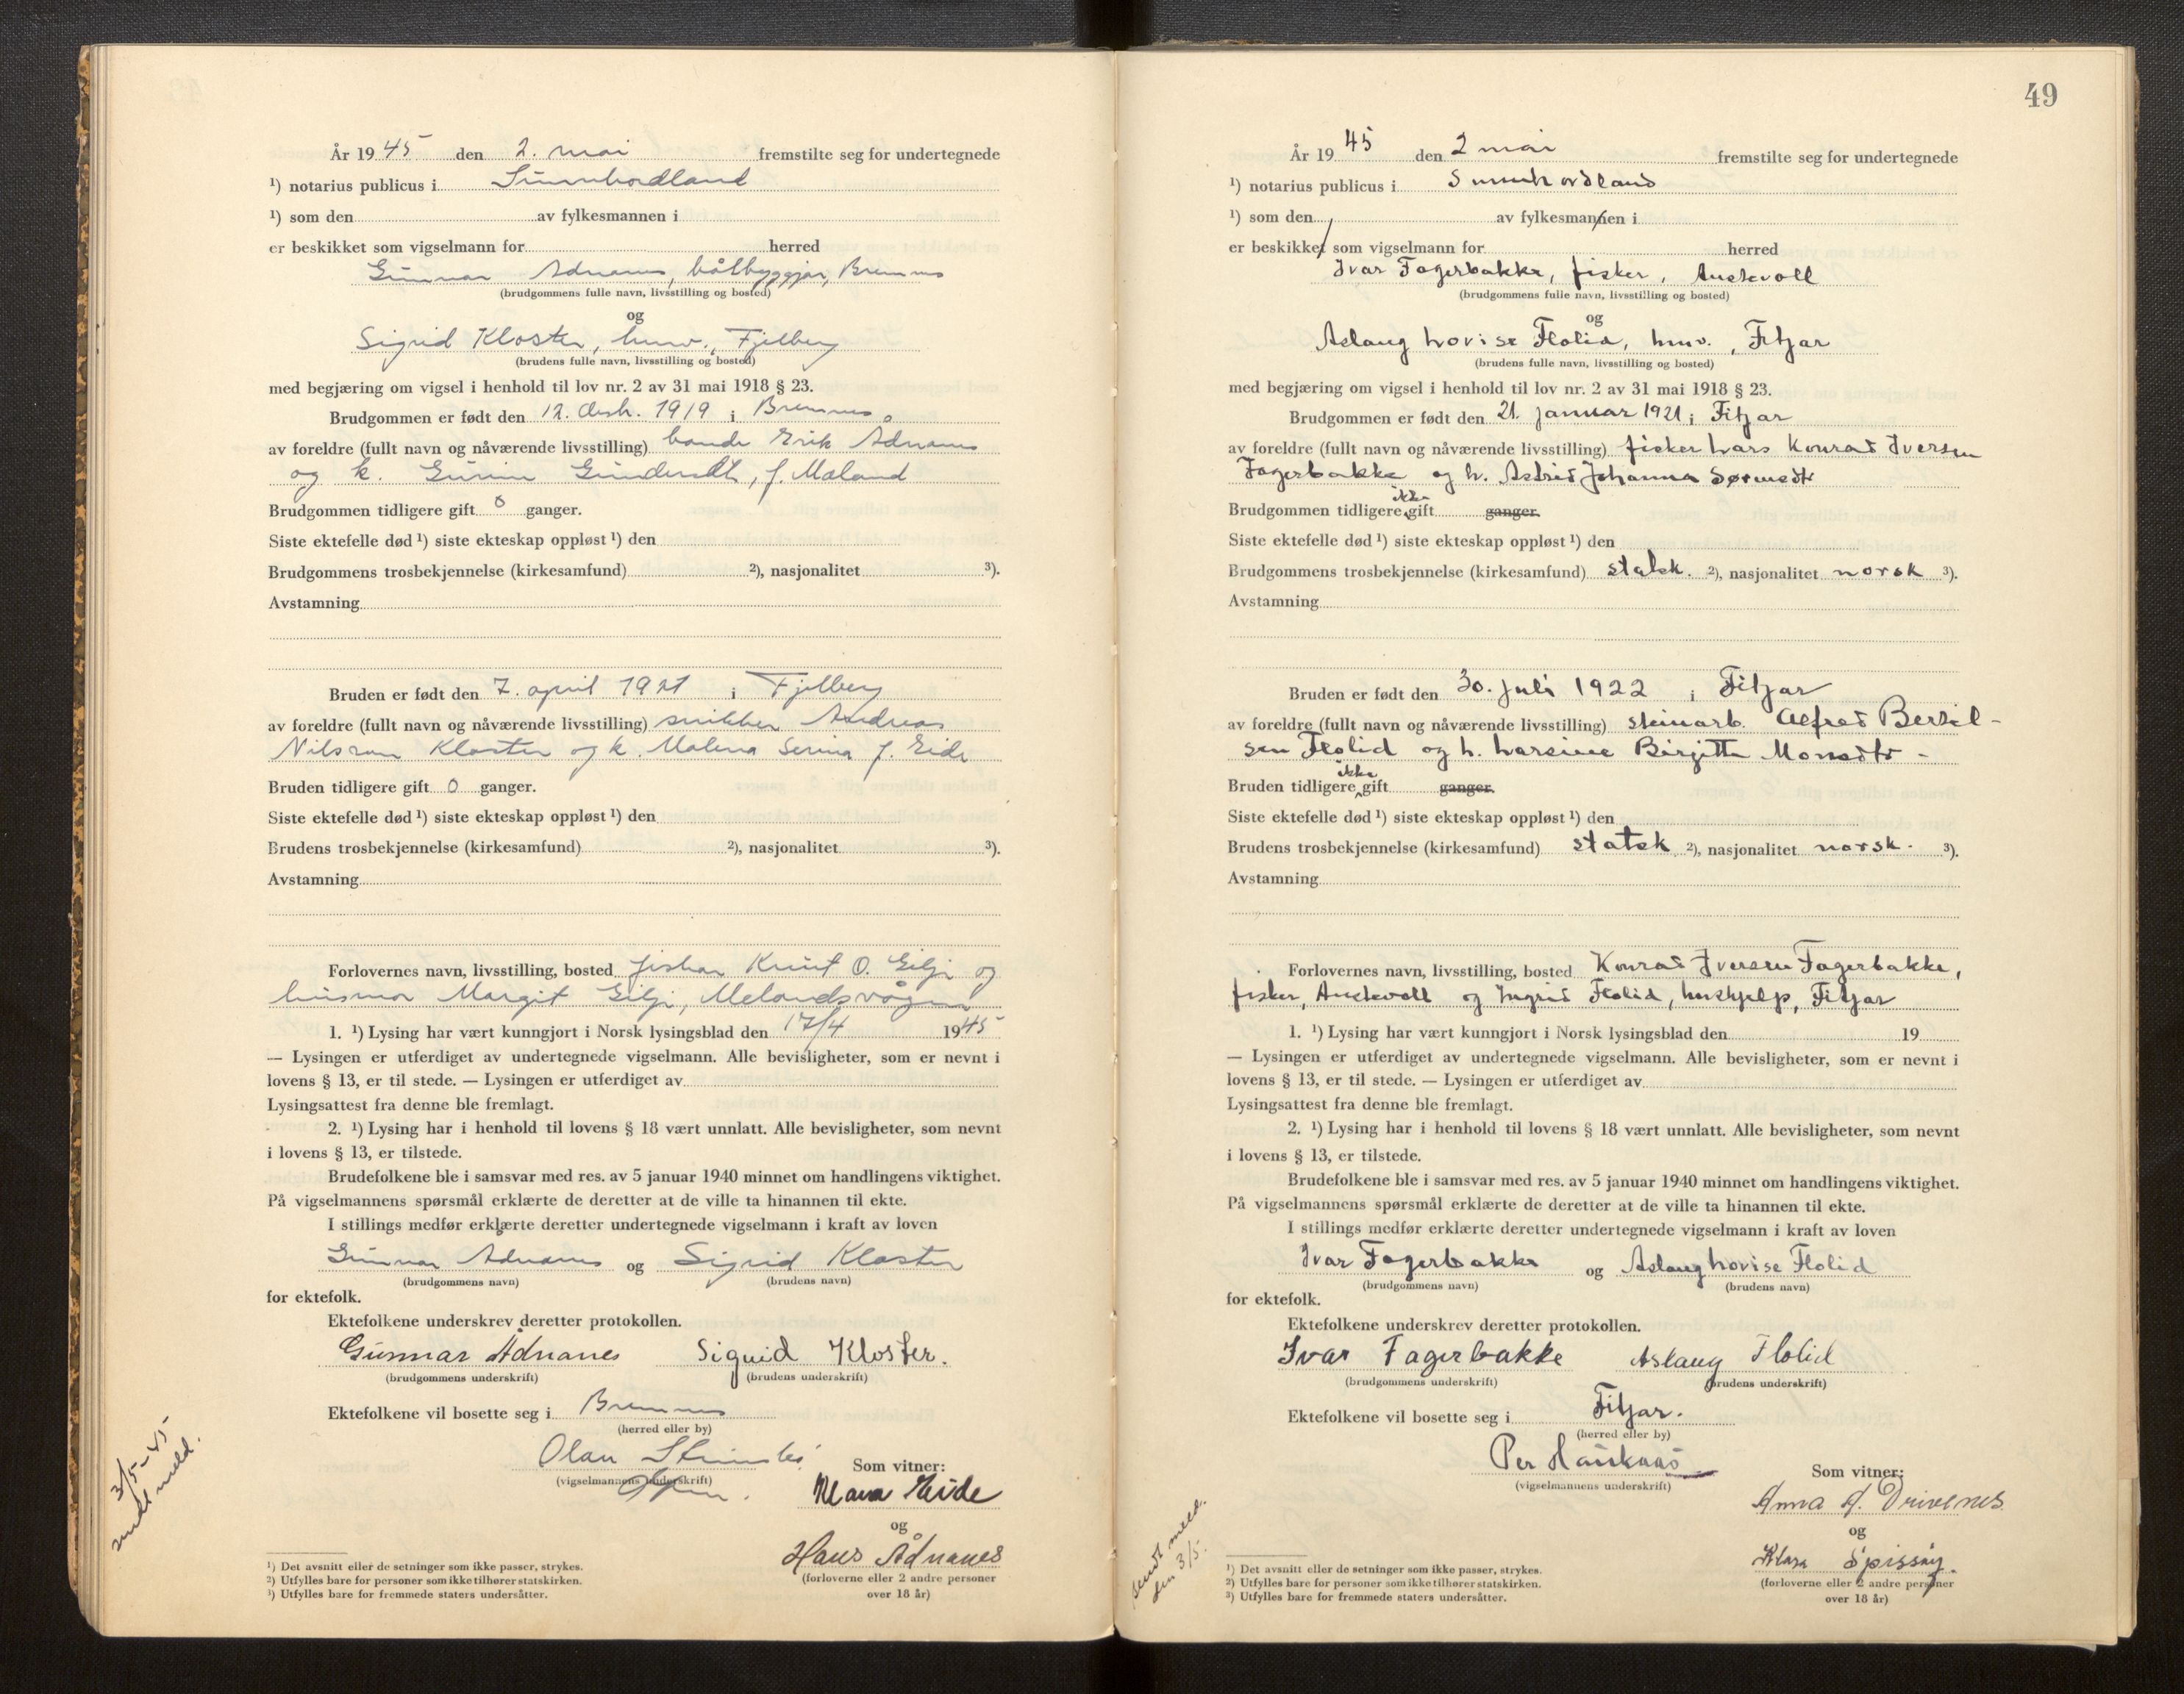 År 19 45 den 2. mai fremstilte seg for undertegnede
¹) notarius publicus i Sunnhordland
¹) som den av fylkesmannen i
er beskikket som vigselmann for herred
Gunnar Ådnanes, båtbyggjar, Bremnes
(brudgommens fulle navn, livsstilling og bosted)
og
Sigrid Kloster, husv., Fjelberg
(brudens fulle navn, livsstilling og bosted)
med begjæring om vigsel i henhold til lov nr. 2 av 31 mai 1918 § 23.
Brudgommen er født den 12. desb. 1919 i Bremnes
av foreldre (fullt navn og nåværende livsstilling) bonde Erik Ådnanes
og k. Gurine Gundersdt, f. Meland
Brudgommen tidligere gift 0 ganger.
Siste ektefelle død ¹) siste ekteskap oppløst ¹) den
Brudgommens trosbekjennelse (kirkesamfund) ²), nasjonalitet ³).
Avstamning
Bruden er født den 7. april 1921 i Fjelberg
av foreldre (fullt navn og nåværende livsstilling) snikker Andreas
Nilsson Kloster og k. Malena Serina f. Eide
Bruden tidligere gift 0 ganger.
Siste ektefelle død ¹) siste ekteskap oppløst ¹) den
Brudens trosbekjennelse (kirkesamfund) ²), nasjonalitet ³).
Avstamning
Forlovernes navn, livsstilling, bosted fiskar Knut O. Gilje og
husmor Margit Gilje, Melandsvågen
1. ¹) Lysing har vært kunngjort i Norsk lysingsblad den 17/4 1945
— Lysingen er utferdiget av undertegnede vigselmann. Alle bevisligheter, som er nevnt i
lovens § 13, er til stede. — Lysingen er utferdiget av
Lysingsattest fra denne ble fremlagt.
2. ¹) Lysing har i henhold til lovens § 18 vært unnlatt. Alle bevisligheter, som nevnt
i lovens § 13, er tilstede.
Brudefolkene ble i samsvar med res. av 5 januar 1940 minnet om handlingens viktighet.
På vigselmannens spørsmål erklærte de deretter at de ville ta hinannen til ekte.
I stillings medfør erklærte deretter undertegnede vigselmann i kraft av loven
Gunnar Ådnanes og Sigrid Kloster
(brudgommens navn) (brudens navn)
for ektefolk.
Ektefolkene underskrev deretter protokollen.
Gunnar Ådnanes Sigrid Kloster.
(brudgommens underskrift) (brudens underskrift)
Ektefolkene vil bosette seg i Bremnes
(herred eller by)
Olav
(vigselmannens underskrift)
Som vitner:
Klara Eide
og
Hans Ådnanes
(forloverne eller 2 andre personer
over 18 år)
3/5-45
sendt meld.
¹) Det avsnitt eller de setninger som ikke passer, strykes.
²) Utfylles bare for personer som ikke tilhører statskirken.
³) Utfylles bare for fremmede staters undersåtter.
49
År 19 45 den 2 mai fremstilte seg for undertegnede
¹) notarius publicus i Sunnhordland
¹) som den av fylkesmannen i
er beskikket som vigselmann for herred
Ivar Fagerbakke, fisker, Austevoll
(brudgommens fulle navn, livsstilling og bosted)
og
Aslaug Lovise Flolid, husv., Fitjar
(brudens fulle navn, livsstilling og bosted)
med begjæring om vigsel i henhold til lov nr. 2 av 31 mai 1918 § 23.
Brudgommen er født den 21. januar 1921 i Fitjar
av foreldre (fullt navn og nåværende livsstilling) fisker Lars Konrad Iversen
Fagerbakke og h. Astrid Johanna Sørensdtr
Brudgommen tidligere ikke gift ganger.
Siste ektefelle død ¹) siste ekteskap oppløst ¹) den
Brudgommens trosbekjennelse (kirkesamfund) statsk. ²), nasjonalitet norsk ³).
Avstamning
Bruden er født den 30. juli 1922 i Fitjar
av foreldre (fullt navn og nåværende livsstilling) steinarb. Alfred Bertil-
sen Flolid og h. Larsine Birgitte Monsdtr -
Bruden tidligere ikke gift ganger.
Siste ektefelle død ¹) siste ekteskap oppløst ¹) den
Brudens trosbekjennelse (kirkesamfund) statsk ²), nasjonalitet norsk. ³).
Avstamning
Forlovernes navn, livsstilling, bosted Konrad Iversen Fagerbakke,
fisker, Austevoll og Ingrid Flolid, hushjelp, Fitjar
1. ¹) Lysing har vært kunngjort i Norsk lysingsblad den 19
— Lysingen er utferdiget av undertegnede vigselmann. Alle bevisligheter, som er nevnt i
lovens § 13, er til stede. — Lysingen er utferdiget av
Lysingsattest fra denne ble fremlagt.
2. ¹) Lysing har i henhold til lovens § 18 vært unnlatt. Alle bevisligheter, som nevnt
i lovens § 13, er tilstede.
Brudefolkene ble i samsvar med res. av 5 januar 1940 minnet om handlingens viktighet.
På vigselmannens spørsmål erklærte de deretter at de ville ta hinannen til ekte.
I stillings medfør erklærte deretter undertegnede vigselmann i kraft av loven
Ivar Fagerbakke og Aslaug Lovise Flolid
(brudgommens navn) (brudens navn)
for ektefolk.
Ektefolkene underskrev deretter protokollen.
Ivar Fagerbakke Aslaug Flolid
(brudgommens underskrift) (brudens underskrift)
Ektefolkene vil bosette seg i Fitjar.
(herred eller by)
Per Hauknas
(vigselmannens underskrift)
Som vitner:
Anna A. Drivenes
og
Klara Spissøy.
(forloverne eller 2 andre personer
over 18 år)
Sendt meld.
den 3/5.
¹) Det avsnitt eller de setninger som ikke passer, strykes.
²) Utfylles bare for personer som ikke tilhører statskirken.
³) Utfylles bare for fremmede staters undersåtter.